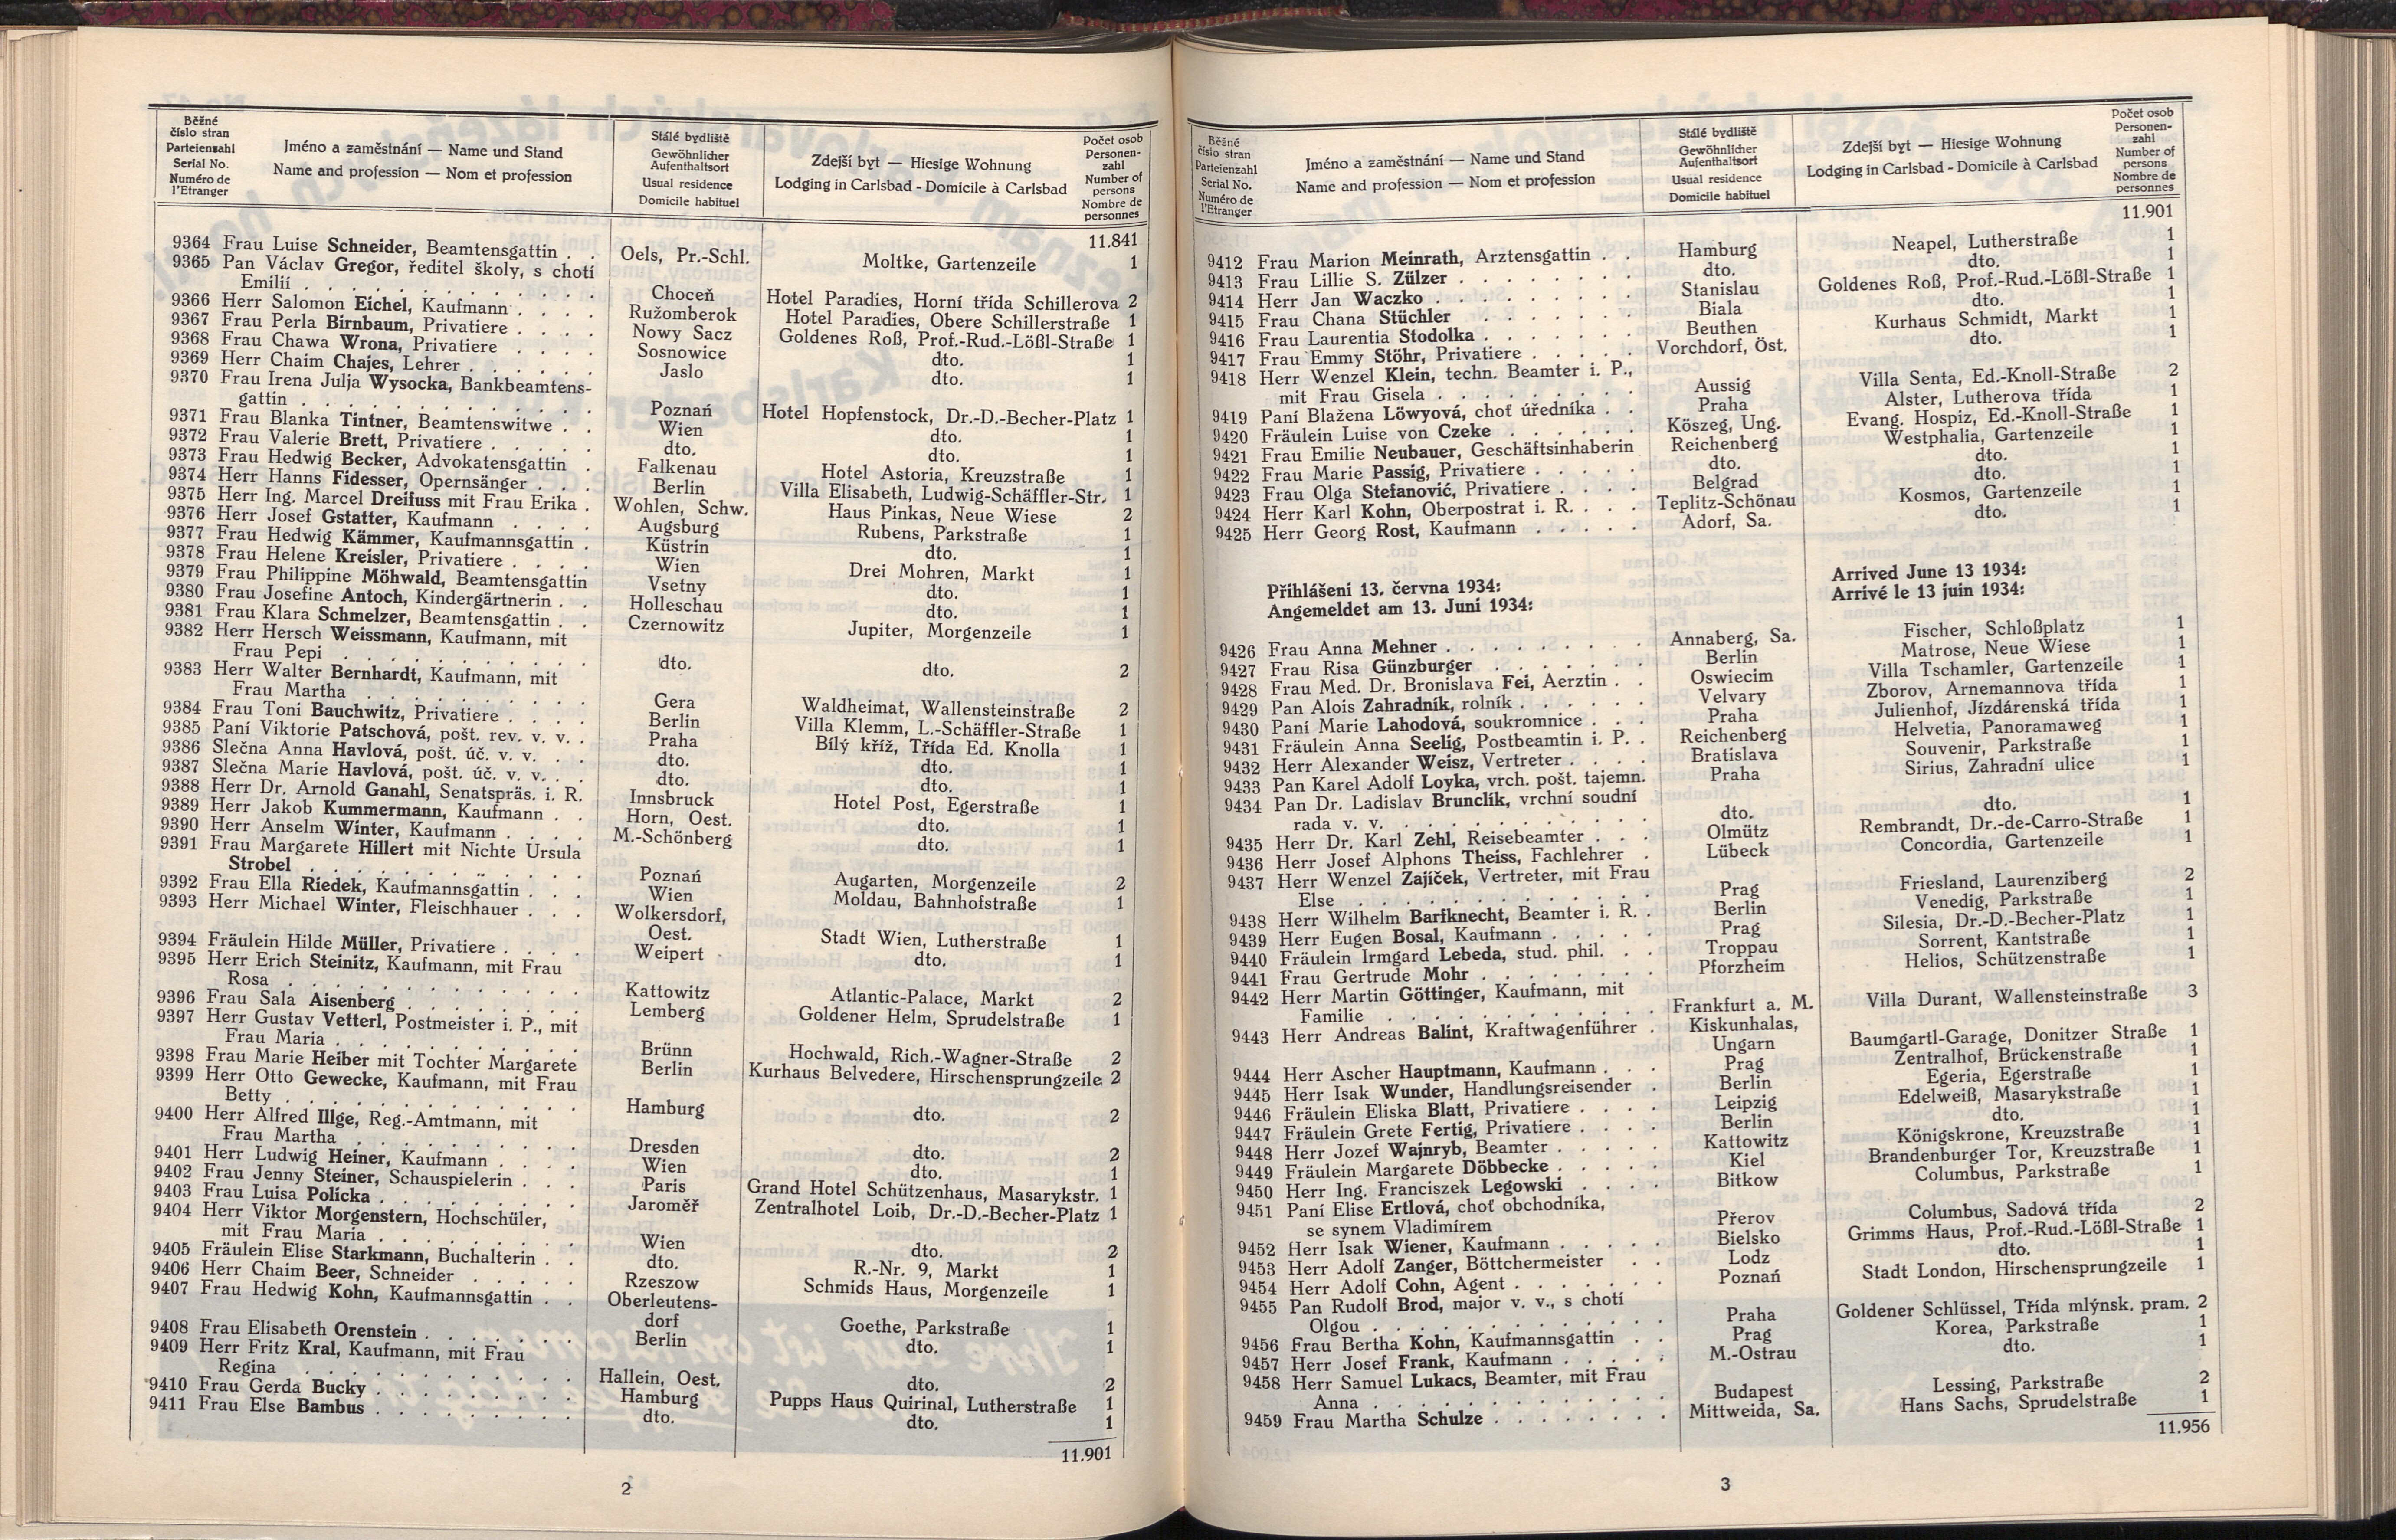 Běžné
číslo stran
Parteienzahl
Serial No.
Numéro de
l'Etranger
Jméno a zaměstnání — Name und Stand
Name and profession — Nom et profession
Stálé bydliště
Gewöhnlicher
Aufenthaltsort
Usual residence
Domicile habituel
Zdejší byt — Hiesige Wohnung
Lodging in Carlsbad - Domicile à Carlsbad
Počet osob
Personen-
zahl
Number of
persons
Nombre de
personnes
11.841
9364 Frau Luise Schneider, Beamtensgattin . . Oels, Pr.-Schl. Moltke, Gartenzeile 1
9365 Pan Václav Gregor, ředitel školy, s chotí
Emilií . . . Choceň Hotel Paradies, Horní třída Schillerova 2
9366 Herr Salomon Eichel, Kaufmann . . . . Ružomberok Hotel Paradies, Obere Schillerstraße 1
9367 Frau Perla Birnbaum, Privatiere . . . . Nowy Sacz Goldenes Roß, Prof.-Rud.-Lößl-Straße 1
9368 Frau Chawa Wrona, Privatiere . . . . Sosnowice dto. 1
9369 Herr Chaim Chajes, Lehrer . . . . . . Jaslo dto. 1
9370 Frau Irena Julja Wysocka, Bankbeamtens-
gattin . . . Poznań Hotel Hopfenstock, Dr.-D.-Becher-Platz 1
9371 Frau Blanka Tintner, Beamtenswitwe . . Wien dto. 1
9372 Frau Valerie Brett, Privatiere . . . . . dto. dto. 1
9373 Frau Hedwig Becker, Advokatensgattin . Falkenau Hotel Astoria, Kreuzstraße 1
9374 Herr Hanns Fidesser, Opernsänger . . . Berlin Villa Elisabeth, Ludwig-Schäffler-Str. 1
9375 Herr Ing. Marcel Dreifuss mit Frau Erika . Wohlen, Schw. Haus Pinkas, Neue Wiese 2
9376 Herr Josef Gstatter, Kaufmann . . . . Augsburg Rubens, Parkstraße 1
9377 Frau Hedwig Kämmer, Kaufmannsgattin . Küstrin dto. 1
9378 Frau Helene Kreisler, Privatiere . . . . Wien Drei Mohren, Markt 1
9379 Frau Philippine Möhwald, Beamtensgattin Vsetny dto. 1
9380 Frau Josefine Antoch, Kindergärtnerin . . Holleschau dto. 1
9381 Frau Klara Schmelzer, Beamtensgattin . . Czernowitz Jupiter, Morgenzeile 1
9382 Herr Hersch Weissmann, Kaufmann, mit
Frau Pepi . . . dto. dto. 2
9383 Herr Walter Bernhardt, Kaufmann, mit
Frau Martha . . . Gera Waldheimat, Wallensteinstraße 2
9384 Frau Toni Bauchwitz, Privatiere . . . . Berlin Villa Klemm, L.-Schäffler-Straße 1
9385 Paní Viktorie Patschová, pošt. rev. v. v. . Praha Bílý kříž, Třída Ed. Knolla 1
9386 Slečna Anna Havlová, pošt. úč. v. v. . . dto. dto. 1
9387 Slečna Marie Havlová, pošt. úč. v. v. . . dto. dto. 1
9388 Herr Dr. Arnold Ganahl, Senatspräs. i. R. Innsbruck Hotel Post, Egerstraße 1
9389 Herr Jakob Kummermann, Kaufmann . . Horn, Oest. dto. 1
9390 Herr Anselm Winter, Kaufmann . . . . M.-Schönberg dto. 1
9391 Frau Margarete Hillert mit Nichte Ursula
Strobel . . . Poznań Augarten, Morgenzeile 2
9392 Frau Ella Riedek, Kaufmannsgattin . . . Wien Moldau, Bahnhofstraße 1
9393 Herr Michael Winter, Fleischhauer . . . Wolkersdorf,
Oest. Stadt Wien, Lutherstraße 1
9394 Fräulein Hilde Müller, Privatiere . . . . Weipert dto. 1
9395 Herr Erich Steinitz, Kaufmann, mit Frau
Rosa . . . Kattowitz Atlantic-Palace, Markt 2
9396 Frau Sala Aisenberg . . . Lemberg Goldener Helm, Sprudelstraße 1
9397 Herr Gustav Vetterl, Postmeister i. P., mit
Frau Maria . . . Brünn Hochwald, Rich.-Wagner-Straße 2
9398 Frau Marie Heiber mit Tochter Margarete Berlin Kurhaus Belvedere, Hirschensprungzeile 2
9399 Herr Otto Gewecke, Kaufmann, mit Frau
Betty . . . Hamburg dto. 2
9400 Herr Alfred Illge, Reg.-Amtmann, mit
Frau Martha . . . Dresden dto. 2
9401 Herr Ludwig Heiner, Kaufmann . . . . Wien dto. 1
9402 Frau Jenny Steiner, Schauspielerin . . . Paris Grand Hotel Schützenhaus, Masarykstr. 1
9403 Frau Luisa Policka . . . Jaroměř Zentralhotel Loib, Dr.-D.-Becher-Platz 1
9404 Herr Viktor Morgenstern, Hochschüler,
mit Frau Maria . . . Wien dto. 2
9405 Fräulein Elise Starkmann, Buchalterin . . dto. R.-Nr. 9, Markt 1
9406 Herr Chaim Beer, Schneider . . . . . Rzeszow Schmids Haus, Morgenzeile 1
9407 Frau Hedwig Kohn, Kaufmannsgattin . . Oberleutens-
dorf Goethe, Parkstraße 1
9408 Frau Elisabeth Orenstein . . . Berlin dto. 1
9409 Herr Fritz Kral, Kaufmann, mit Frau
Regina . . . Hallein, Oest. dto. 2
9410 Frau Gerda Bucky . . . Hamburg Pupps Haus Quirinal, Lutherstraße 1
9411 Frau Else Bambus . . . dto. dto. 1
11.901
2
Běžné
číslo stran
Parteienzahl
Serial No.
Numéro de
l'Etranger
Jméno a zaměstnání — Name und Stand
Name and profession — Nom et profession
Stálé bydliště
Gewöhnlicher
Aufenthaltsort
Usual residence
Domicile habituel
Zdejší byt — Hiesige Wohnung
Lodging in Carlsbad - Domicile à Carlsbad
Počet osob
Personen-
zahl
Number of
persons
Nombre de
personnes
11.901
9412 Frau Marion Meinrath, Arztensgattin . . Hamburg Neapel, Lutherstraße 1
9413 Frau Lillie S. Zülzer . . . dto. dto. 1
9414 Herr Jan Waczko . . . Stanislau Goldenes Roß, Prof.-Rud.-Lößl-Straße 1
9415 Frau Chana Stüchler . . . Biala dto. 1
9416 Frau Laurentia Stodolka . . . Beuthen Kurhaus Schmidt, Markt 1
9417 Frau Emmy Stöhr, Privatiere . . . . . Vorchdorf, Öst. dto. 1
9418 Herr Wenzel Klein, techn. Beamter i. P.,
mit Frau Gisela . . . Aussig Villa Senta, Ed.-Knoll-Straße 2
9419 Paní Blažena Löwyová, choť úředníka . . Praha Alster, Lutherova třída 1
9420 Fräulein Luise von Czeke . . . Köszeg, Ung. Evang. Hospiz, Ed.-Knoll-Straße 1
9421 Frau Emilie Neubauer, Geschäftsinhaberin Reichenberg Westphalia, Gartenzeile 1
9422 Frau Marie Passig, Privatiere . . . . . dto. dto. 1
9423 Frau Olga Stefanović, Privatiere . . . . Belgrad dto. 1
9424 Herr Karl Kohn, Oberpostrat i. R. . . . Teplitz-Schönau Kosmos, Gartenzeile 1
9425 Herr Georg Rost, Kaufmann . . . . . Adorf, Sa. dto. 1
Přihlášeni 13. června 1934: Arrived June 13 1934:
Angemeldet am 13. Juni 1934: Arrivé le 13 juin 1934:
9426 Frau Anna Mehner . . . Annaberg, Sa. Fischer, Schloßplatz 1
9427 Frau Risa Günzburger . . . Berlin Matrose, Neue Wiese 1
9428 Frau Med. Dr. Bronislava Fei, Aerztin . . Oswiecim Villa Tschamler, Gartenzeile 1
9429 Pan Alois Zahradník, rolník . . . Velvary Zborov, Arnemannova třída 1
9430 Paní Marie Lahodová, soukromnice . . . Praha Julienhof, Jízdárenská třída 1
9431 Fräulein Anna Seelig, Postbeamtin i. P. . Reichenberg Helvetia, Panoramaweg 1
9432 Herr Alexander Weisz, Vertreter . . . . Bratislava Souvenir, Parkstraße 1
9433 Pan Karel Adolf Loyka, vrch. pošt. tajemn. Praha Sirius, Zahradní ulice 1
9434 Pan Dr. Ladislav Brunclík, vrchní soudní
rada v. v. . . . dto. dto. 1
9435 Herr Dr. Karl Zehl, Reisebeamter . . . Olmütz Rembrandt, Dr.-de-Carro-Straße 1
9436 Herr Josef Alphons Theiss, Fachlehrer . Lübeck Concordia, Gartenzeile 1
9437 Herr Wenzel Zajíček, Vertreter, mit Frau
Else . . . Prag Friesland, Laurenziberg 2
9438 Herr Wilhelm Barfknecht, Beamter i. R. . Berlin Venedig, Parkstraße 1
9439 Herr Eugen Bosal, Kaufmann . . . . . Prag Silesia, Dr.-D.-Becher-Platz 1
9440 Fräulein Irmgard Lebeda, stud. phil. . . Troppau Sorrent, Kantstraße 1
9441 Frau Gertrude Mohr . . . Pforzheim Helios, Schützenstraße 1
9442 Herr Martin Göttinger, Kaufmann, mit
Familie . . . Frankfurt a. M. Villa Durant, Wallensteinstraße 3
9443 Herr Andreas Balint, Kraftwagenführer . Kiskunhalas,
Ungarn Baumgartl-Garage, Donitzer Straße 1
9444 Herr Ascher Hauptmann, Kaufmann . . . Prag Zentralhof, Brückenstraße 1
9445 Herr Isak Wunder, Handlungsreisender . Berlin Egeria, Egerstraße 1
9446 Fräulein Eliska Blatt, Privatiere . . . . Leipzig Edelweiß, Masarykstraße 1
9447 Fräulein Grete Fertig, Privatiere . . . . Berlin dto. 1
9448 Herr Jozef Wajnryb, Beamter . . . . . Kattowitz Königskrone, Kreuzstraße 1
9449 Fräulein Margarete Döbbecke . . . . . Kiel Brandenburger Tor, Kreuzstraße 1
9450 Herr Ing. Franciszek Legowski . . . . Bitkow Columbus, Parkstraße 1
9451 Paní Elise Ertlová, choť obchodníka,
se synem Vladimírem Přerov Columbus, Sadová třída 2
9452 Herr Isak Wiener, Kaufmann . . . . . Bielsko Grimms Haus, Prof.-Rud.-Lößl-Straße 1
9453 Herr Adolf Zanger, Böttchermeister . . Lodz dto. 1
9454 Herr Adolf Cohn, Agent . . . Poznań Stadt London, Hirschensprungzeile 1
9455 Pan Rudolf Brod, major v. v., s chotí
Olgou . . . Praha Goldener Schlüssel, Třída mlýnsk. pram. 2
9456 Frau Bertha Kohn, Kaufmannsgattin . . Prag Korea, Parkstraße 1
9457 Herr Josef Frank, Kaufmann . . . . . M.-Ostrau dto. 1
9458 Herr Samuel Lukacs, Beamter, mit Frau
Anna . . . Budapest Lessing, Parkstraße 2
9459 Frau Martha Schulze . . . Mittweida, Sa. Hans Sachs, Sprudelstraße 1
11.956
3